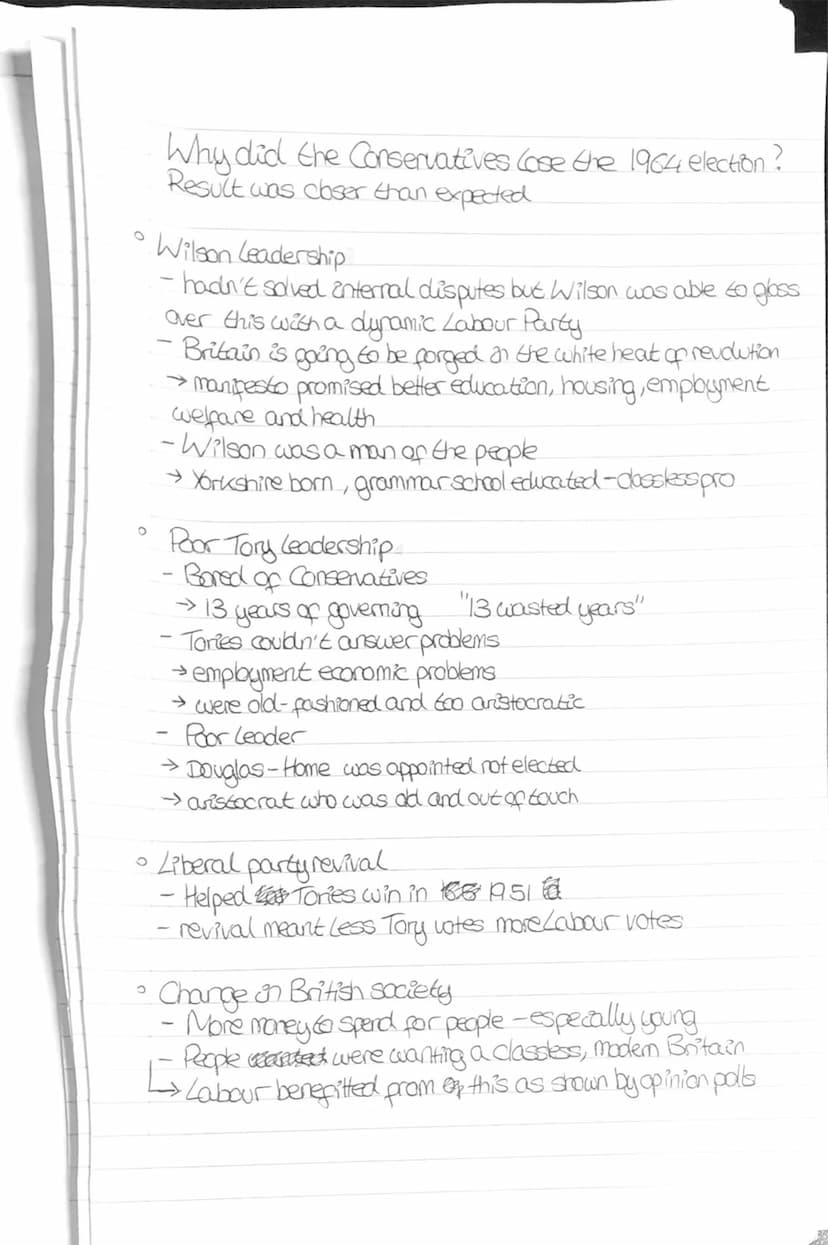 Why did the Conservatives lose the 1964 election?
Result was closer than expected
° Wilson Leadership
- hadn't solved internal disputes but Wilson was able to gloss
over this with a dynamic Labour Party
- Britain is going to be forged in the white heat of revolution
→ manifesto promised better education, housing, employment
welfare and health
- Wilson was a man of the people
→ Yorkshire born, grammar school educated - classless pro
° Poor Tory Leadership
- Bored of Conservatives
→ 13 years of governing "13 wasted years"
- Tories couldn't answer problems
→ employment economic problems
→ were old-fashioned and too aristocratic
- Poor Leader
→ Douglas-Home was appointed not elected
→ aristocrat who was old and out of touch
° Liberal party revival
- Helped Tories win in 1951
- revival meant less Tory votes more Labour votes
° Change in British society
- More money to spend for people - especially young
- People were wanting a classless, modern Britain
→ Labour benefitted from this as shown by opinion polls